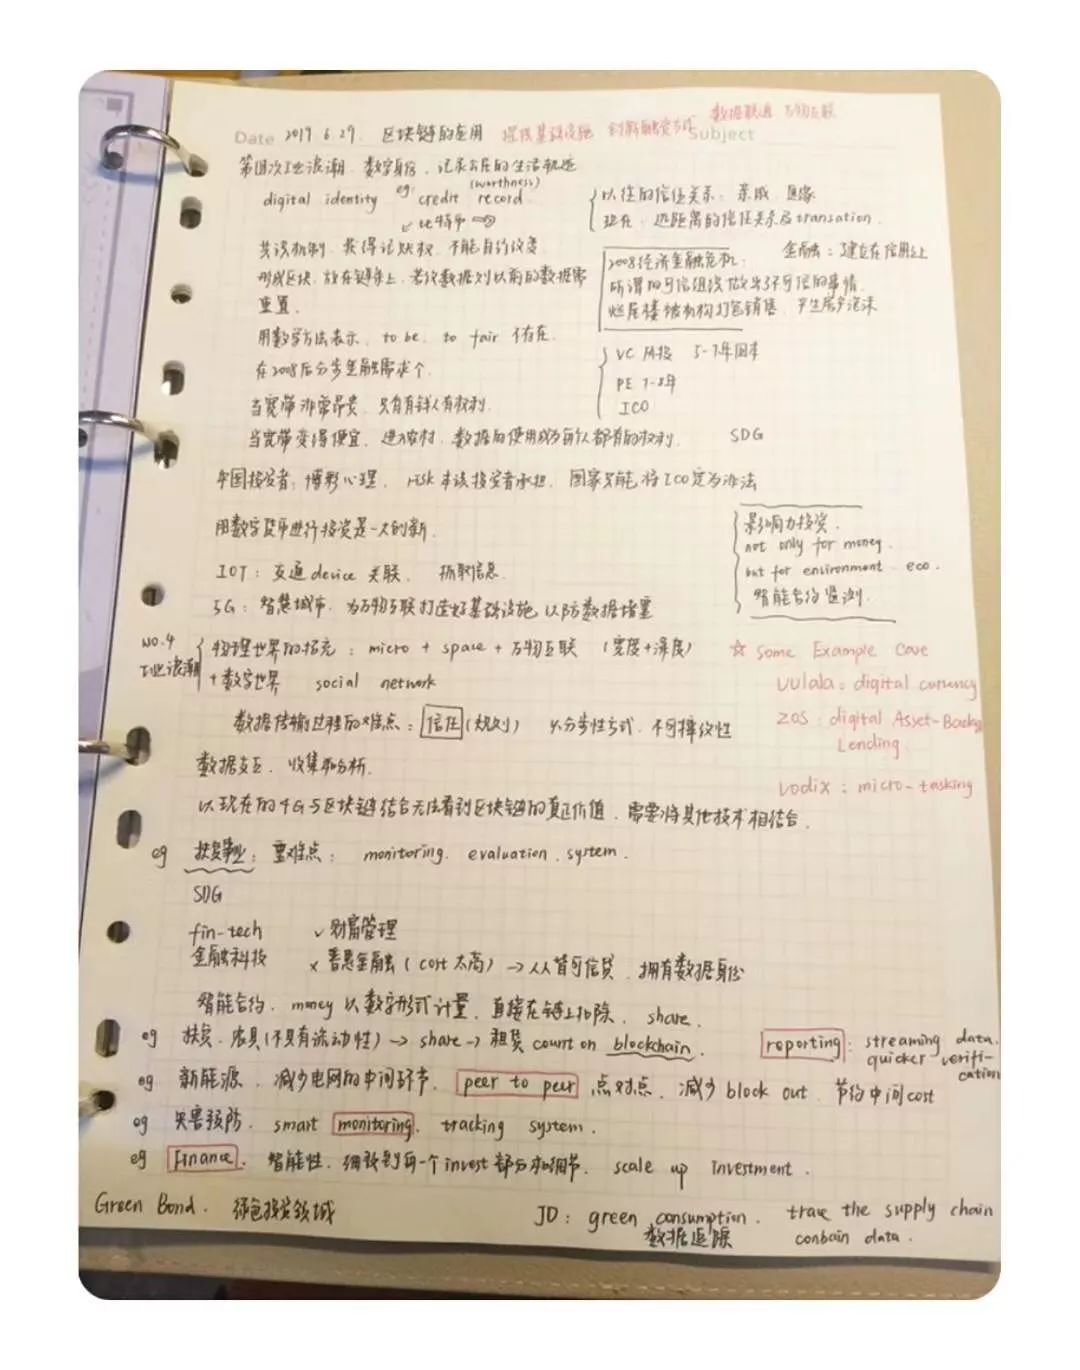 数据联通 万物互联
Date 2019.6.29. 区块链的应用 提供基础设施 创新融资方式 Subject
第四次工业浪潮. 数字身份, 记录公民的生活轨迹
digital identity eg: credit (worthness) record.
比特币
{ 以往的信任关系: 亲戚, 国家
现在: 远距离的信任关系及transation.
共识机制. 获得记账权, 不能自行设定
形成区块, 放在链条上, 若改数据则以前的数据需
重置.
金融: 建立在信用上
2008经济金融危机:
所谓的可信组织做出了不可信的事情.
烂尾楼被机构打包销售, 产生房产泡沫
用数学方法表示, to be, to fair 才存在.
在2008后分步金融需求个.
{ VC 风投 5-7年回本
PE 7-8年
ICO
当宽带非常昂贵, 只有有钱人有权利.
当宽带变得便宜, 进入农村, 数据的使用成为每个人都有的权利. SDG
中国投资者: 博彩心理, risk 本该投资者承担, 国家只能将ICO定为非法
用数字货币进行投资是一大创新.
{ 影响力投资.
not only for money.
but for environment. eco.
智能合约监测.
IOT: 交通device 关联. 抓取信息.
5G: 智慧城市, 为万物互联打造好基础设施, 以防数据堵塞
NO.4
工业浪潮
{ 物理世界的拓充: micro + space + 万物互联 (宽度+深度)
+ 数字世界 social network
☆ Some Example Case
UUlala: digital currency
ZOS: digital Asset-Backg
Lending
Vodix: micro-tasking
数据传输过程的难点: 信任 (规则) 以分步性方式, 不可撰改性
数据交互, 收集和分析.
以现在的4G与区块链结合无法看到区块链的真正价值, 需要将其他技术相结合.
eg 扶贫事业: 重难点: monitoring. evaluation. system.
SDG
fin-tech ✓ 财富管理
金融科技 × 普惠金融 (cost 太高) → 人人皆可信贷, 拥有数据身份
智能合约. money 以数字形式计量, 直接在链上扣除. share.
eg 扶贫. 农具 (不具有流动性) → share → 租赁 count on blockchain.
reporting: streaming data.
quicker verifi-
cation
eg 新能源. 减少电网的中间环节. peer to peer 点对点. 减少 block out. 节约中间cost
eg 灾害预防. smart monitoring. tracking system.
eg Finance. 智能性, 细致到每一个invest部分和细节. scale up investment.
Green Bond. 绿色投资领域
JD: green consumption. trace the supply chain
数据追踪 conbain data.